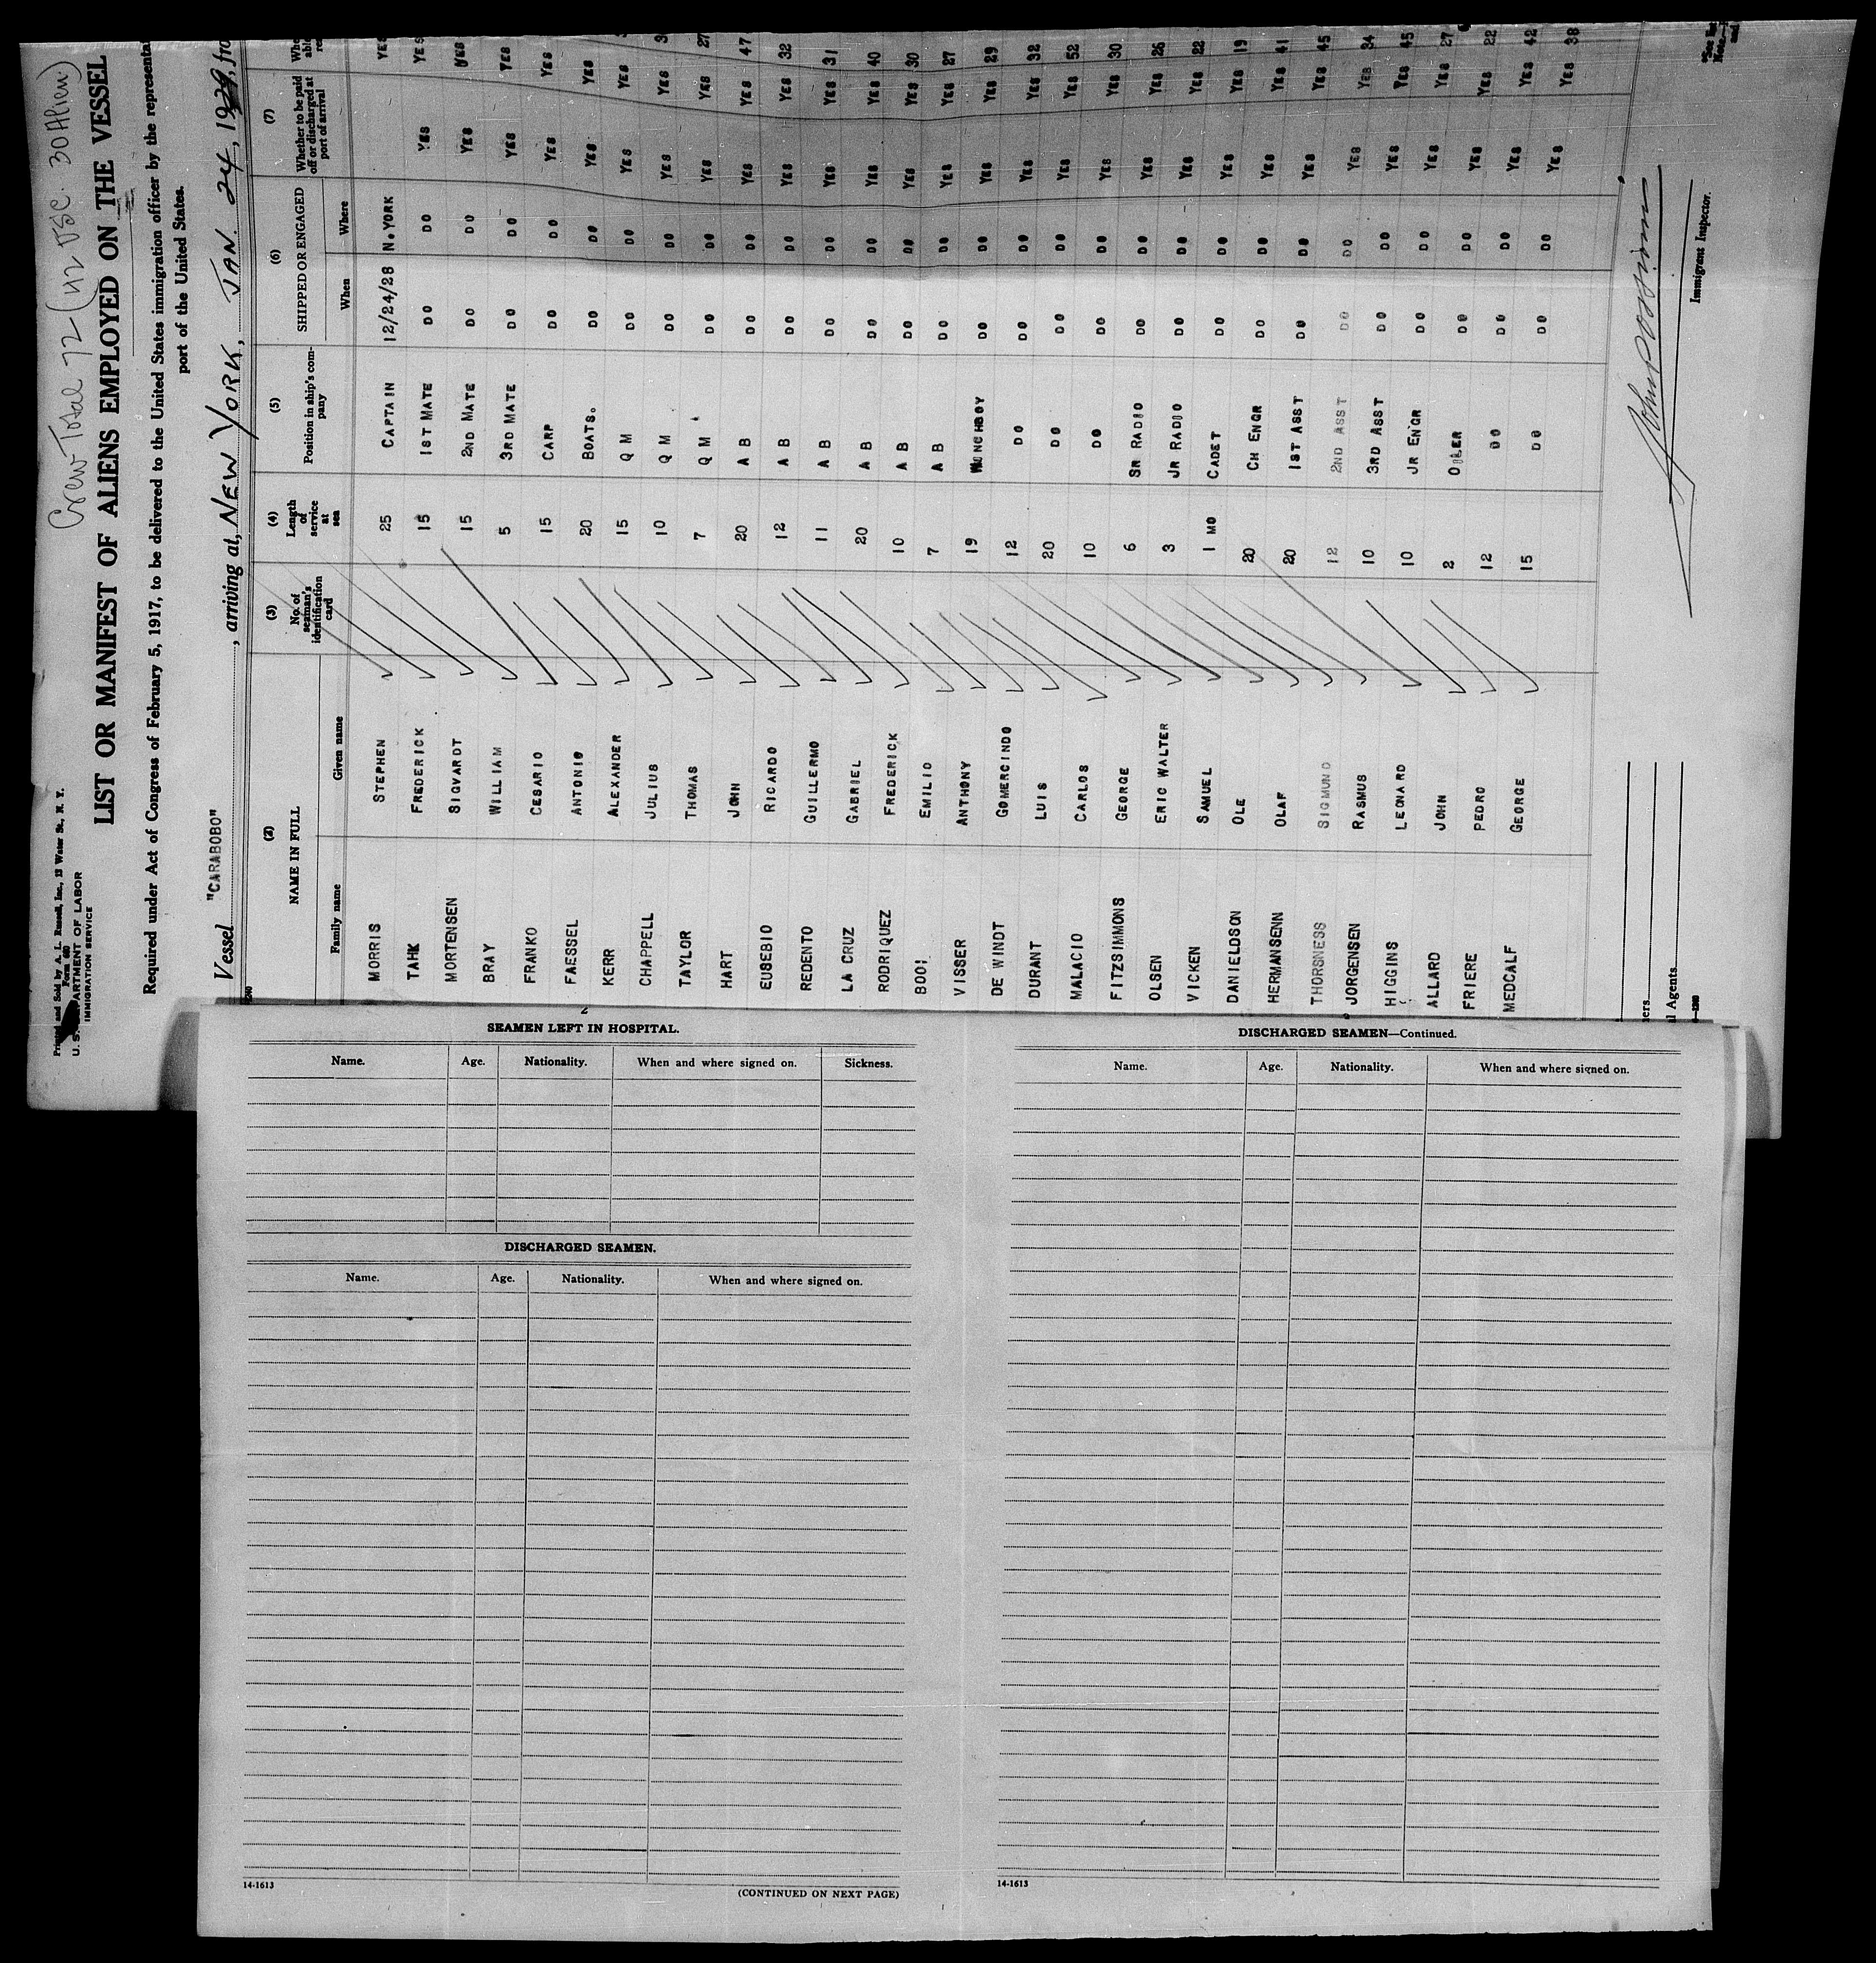 Crew Total 72 (42 USC. 30 Alien)
Printed and Sold by A. L. Russell, Inc., 12 Water St., N. Y.
Form 680
U. S. DEPARTMENT OF LABOR
IMMIGRATION SERVICE
LIST OR MANIFEST OF ALIENS EMPLOYED ON THE VESSEL
Required under Act of Congress of February 5, 1917, to be delivered to the United States immigration officer by the representa
port of the United States.
Vessel "CARABOBO", arriving at, NEW YORK, JAN. 24, 1929, fro
(2) (3) (4) (5) (6) (7)
NAME IN FULL No. of seaman's identification card Length of service at sea Position in ship's company SHIPPED OR ENGAGED Whether to be paid off or discharged at port of arrival
Family name Given name When Where
MORRIS STEPHEN 25 CAPTAIN 12/24/28 N.YORK YES
TAHK FREDERICK 15 1ST MATE DO DO YES YES
MORTENSEN SIGVARDT 15 2ND MATE DO DO YES YES
BRAY WILLIAM 5 3RD MATE DO DO YES YES
FRANKO CESARIO 15 CARP DO DO YES YES
FAESSEL ANTONIO 20 BOATS. DO DO YES YES
KERR ALEXANDER 15 Q M DO DO YES YES
CHAPPELL JULIUS 10 Q M DO DO YES YES
TAYLOR THOMAS 7 Q M DO DO YES YES 27
HART JOHN 20 A B DO DO YES YES 47
EUSEBIO RICARDO 12 A B DO DO YES YES 32
REDENTO GUILLERMO 11 A B DO DO YES YES 31
LA CRUZ GABRIEL 20 A B DO DO YES YES 40
RODRIQUEZ FREDERICK 10 A B DO DO YES YES 30
BOOI EMILIO 7 A B DO DO YES YES 27
VISSER ANTHONY 19 DO DO YES YES 29
DE WINDT GOMERCINDO 12 DO DO DO YES YES 32
DURANT LUIS 20 DO DO DO YES YES 52
MALACIO CARLOS 10 DO DO DO YES YES 30
FITZSIMMONS GEORGE 6 SR RADIO DO DO YES YES 26
OLSEN ERIC WALTER 3 JR RADIO DO DO YES YES 22
VICKEN SAMUEL 1 MO CADET DO DO YES YES 19
DANIELDSON OLE 20 CH ENGR DO DO YES YES 41
HERMANSENN OLAF 20 1ST ASST DO DO YES YES 45
THORSNESS SIGMUND 12 2ND ASST DO DO YES YES 34
JORGENSEN RASMUS 10 3RD ASST DO DO YES YES 45
HIGGINS LEONARD 10 JR ENGR DO DO YES YES 27
ALLARD JOHN 2 OILER DO DO YES YES 22
FRIERE PEDRO 12 DO DO DO YES YES 42
MEDCALF GEORGE 15 DO DO DO YES YES 38
Immigrant Inspector.
SEAMEN LEFT IN HOSPITAL.
Name. Age. Nationality. When and where signed on. Sickness.
DISCHARGED SEAMEN.
Name. Age. Nationality. When and where signed on.
14-1613
(CONTINUED ON NEXT PAGE)
DISCHARGED SEAMEN—Continued.
Name. Age. Nationality. When and where signed on.
14-1613